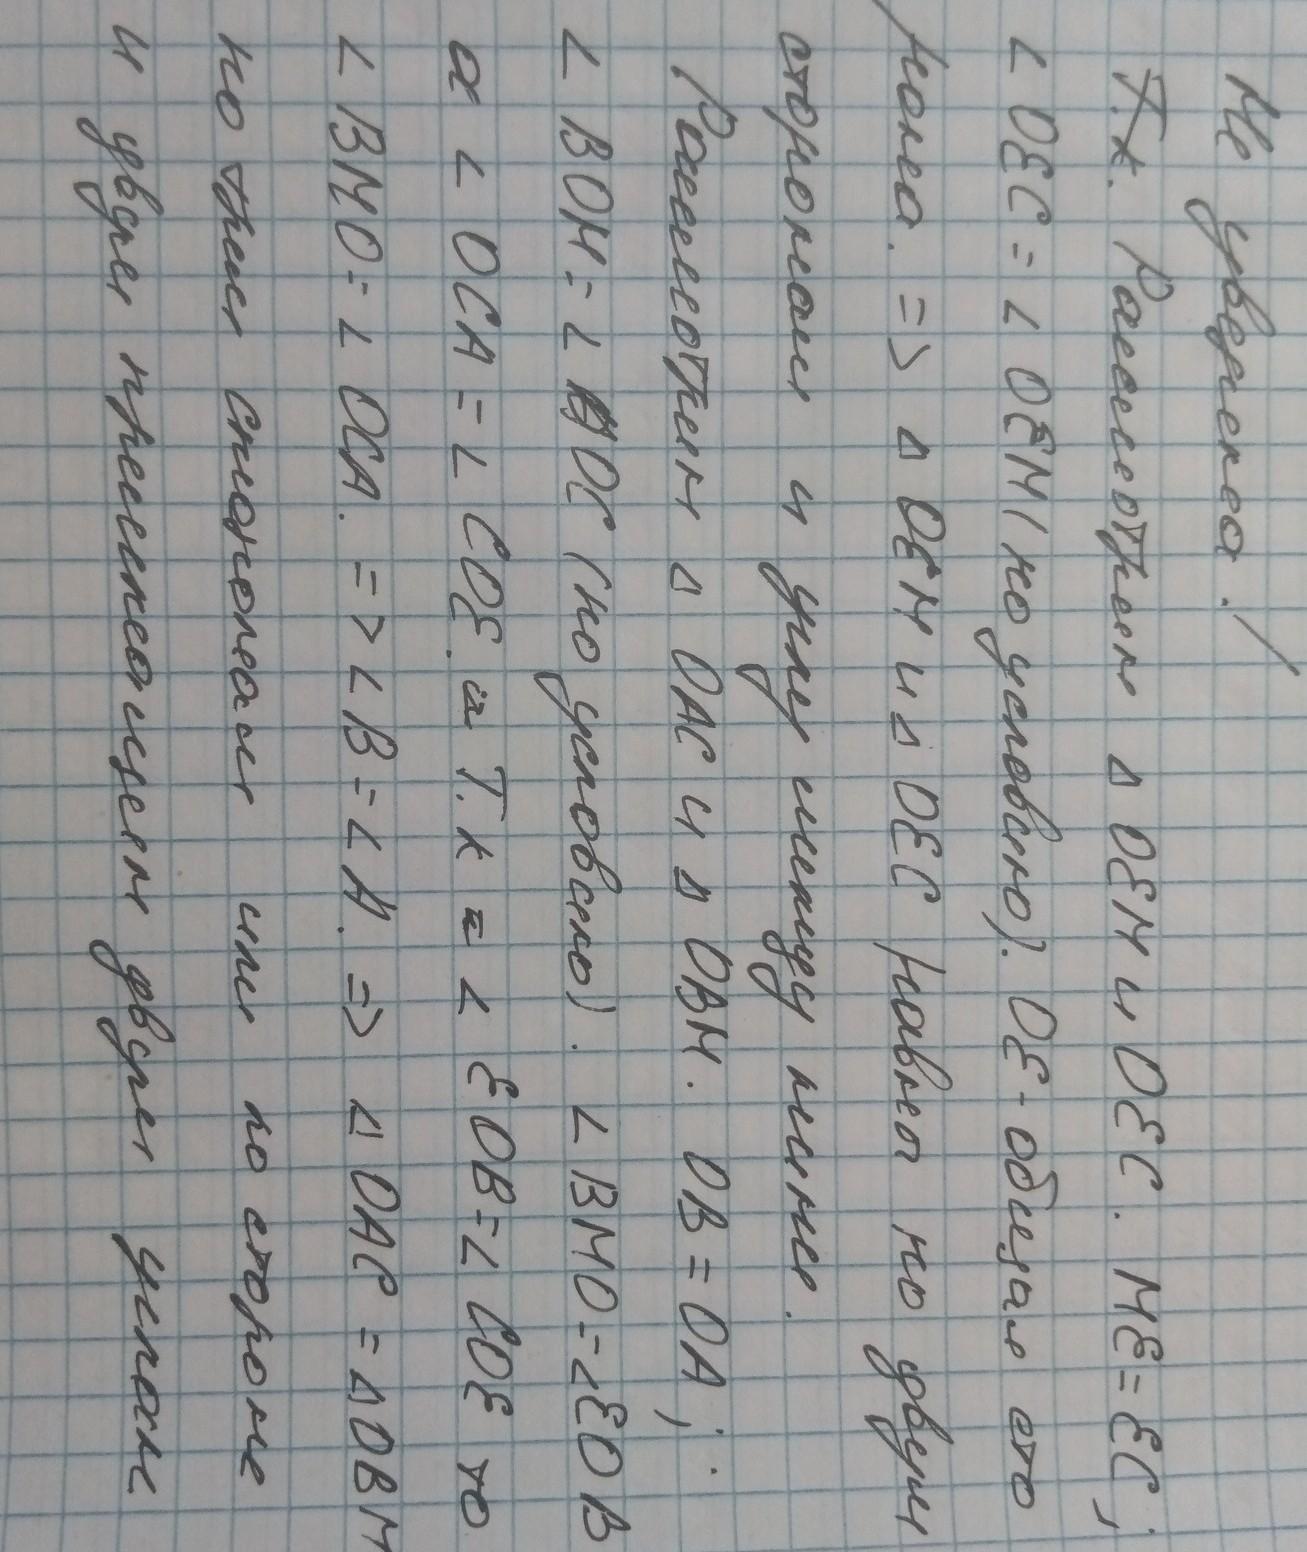 Не уверена!
Т.к. Рассмотрем △ OEM и OEC. ME = EC;
∠ OEC = ∠ OEM (по условию). OE - общая сто
рона. => △ OEM и △ OEC равны по двум
сторонам и углу между ними.
Рассмотрем △ OAC и △ OBM. OB = OA;
∠ BOM = ∠ AOC (по условию). ∠ BMO = ∠ EOB
а ∠ OCA = ∠ COE. Т.к ∠ EOB = ∠ COE то
∠ BMO = ∠ OCA. => ∠ B = ∠ A. => △ OAC = △ OBM
по трем сторонам или по стороне
и двум прилежащем двум углам